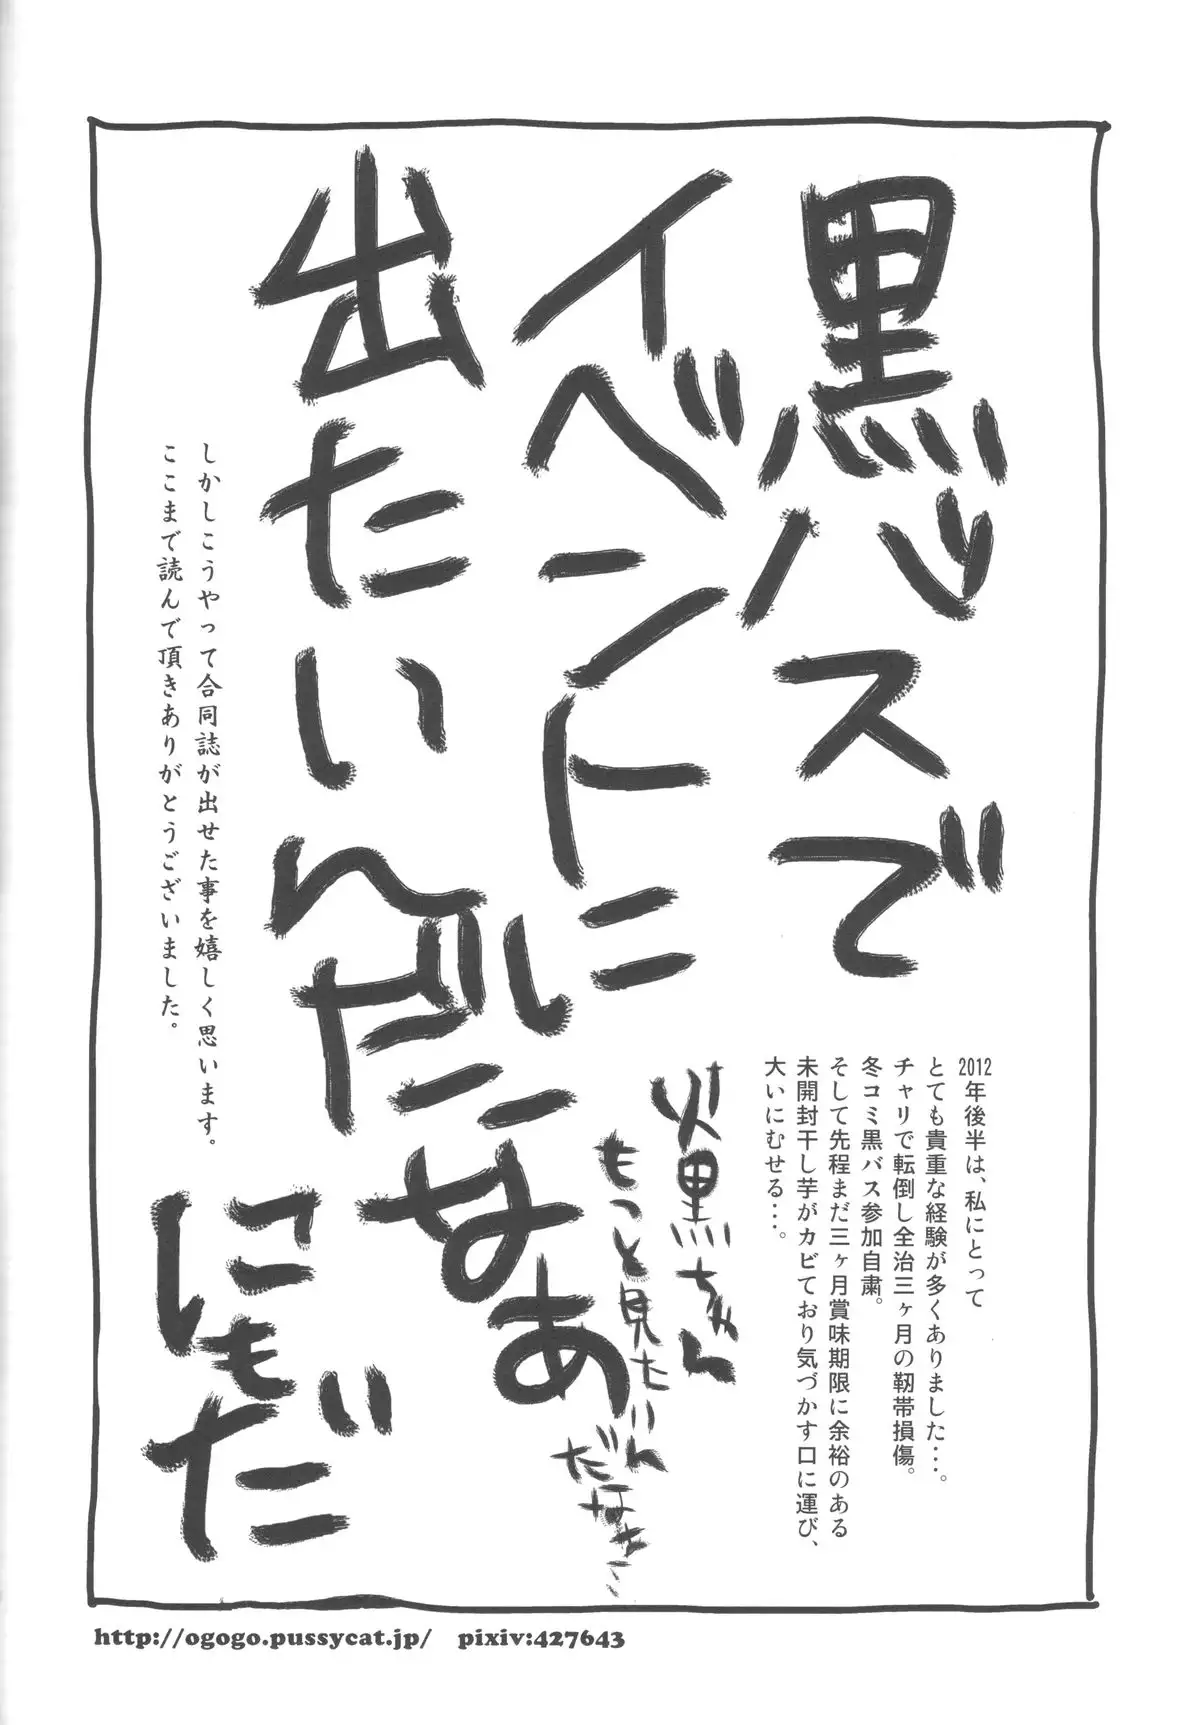 黒バスで
イベントに
出たいんだなあ
2012年後半は、私にとって
とても貴重な経験が多くありました・・・。
チャリで転倒し全治三ヶ月の靭帯損傷。
冬コミ黒バス参加自粛。
そして先程まだ三ヶ月賞味期限に余裕のある
未開封干し芋がカビており気づかす口に運び、
大いにむせる・・・。
火黒ちゃん
もっと見たいん
だなあ
にもだ
しかしこうやって合同誌が出せた事を嬉しく思います。
ここまで読んで頂きありがとうございました。
http://ogogo.pussycat.jp/ pixiv:427643